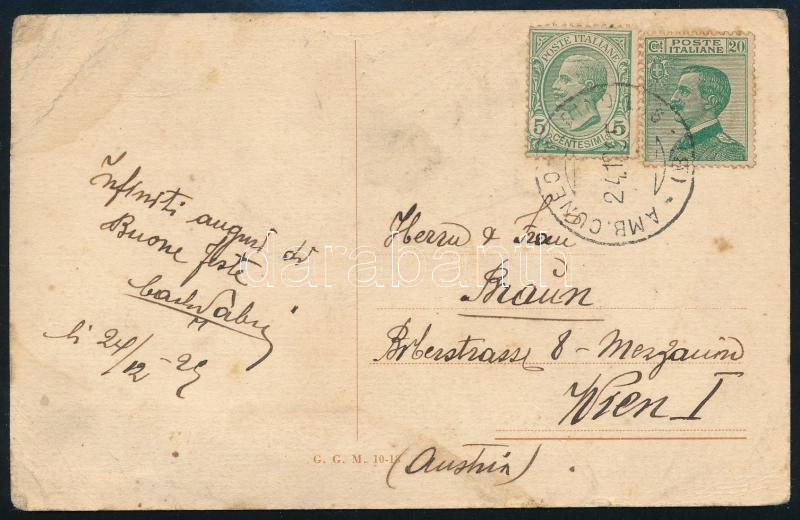 POSTE ITALIANE
5 5
CENTESIMI
POSTE
Cmi ITALIANE 20
AMB. CUNEO
24.12
Infiniti auguri di
Buone feste
li 24/12 - 29
Herrn & Frau
Braun
Biberstrasse 8 - Mezzanin
Wien I
(Austria)
G. G. M. 10-18
darabanth